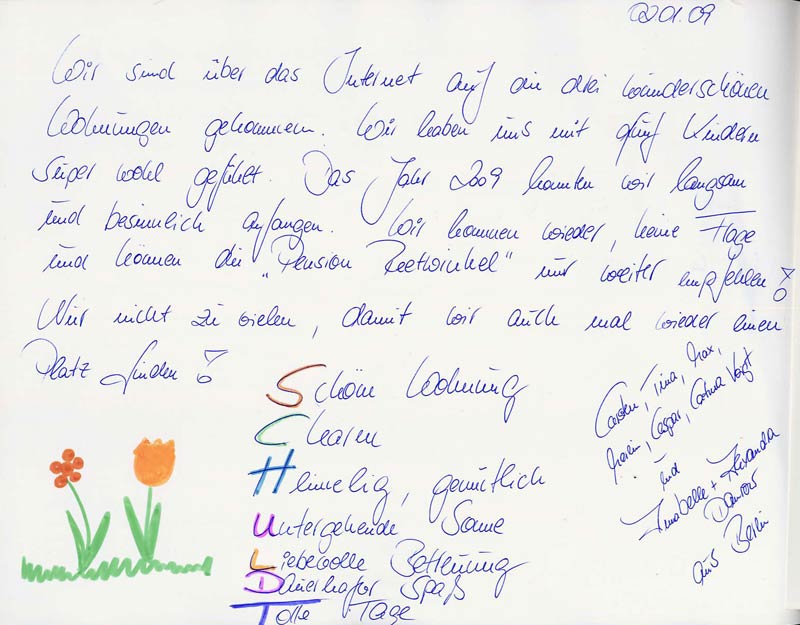 02.01.09
Wir sind über das Internet auf die drei wunderschönen
Wohnungen gekommen. Wir haben uns mit fünf Kindern
super wohl gefühlt. Das Jahr 2009 konnten wir langsam
und besinnlich anfangen. Wir kommen wieder, keine Frage
und können die „Pension Reetwinkel“ nur weiter empfehlen!
Nur nicht zu vielen, damit wir auch mal wieder einen
Platz finden!
Schöne Wohnung
Charm
Heimelig, gemütlich
Untergehende Sonne
Liebevolle Betreuung
Dauerhafter Spaß
Tolle Tage
Carsten, Tina, Max,
Caspar, Carina Voigt
und
Annabelle + Alexandra
aus Berlin